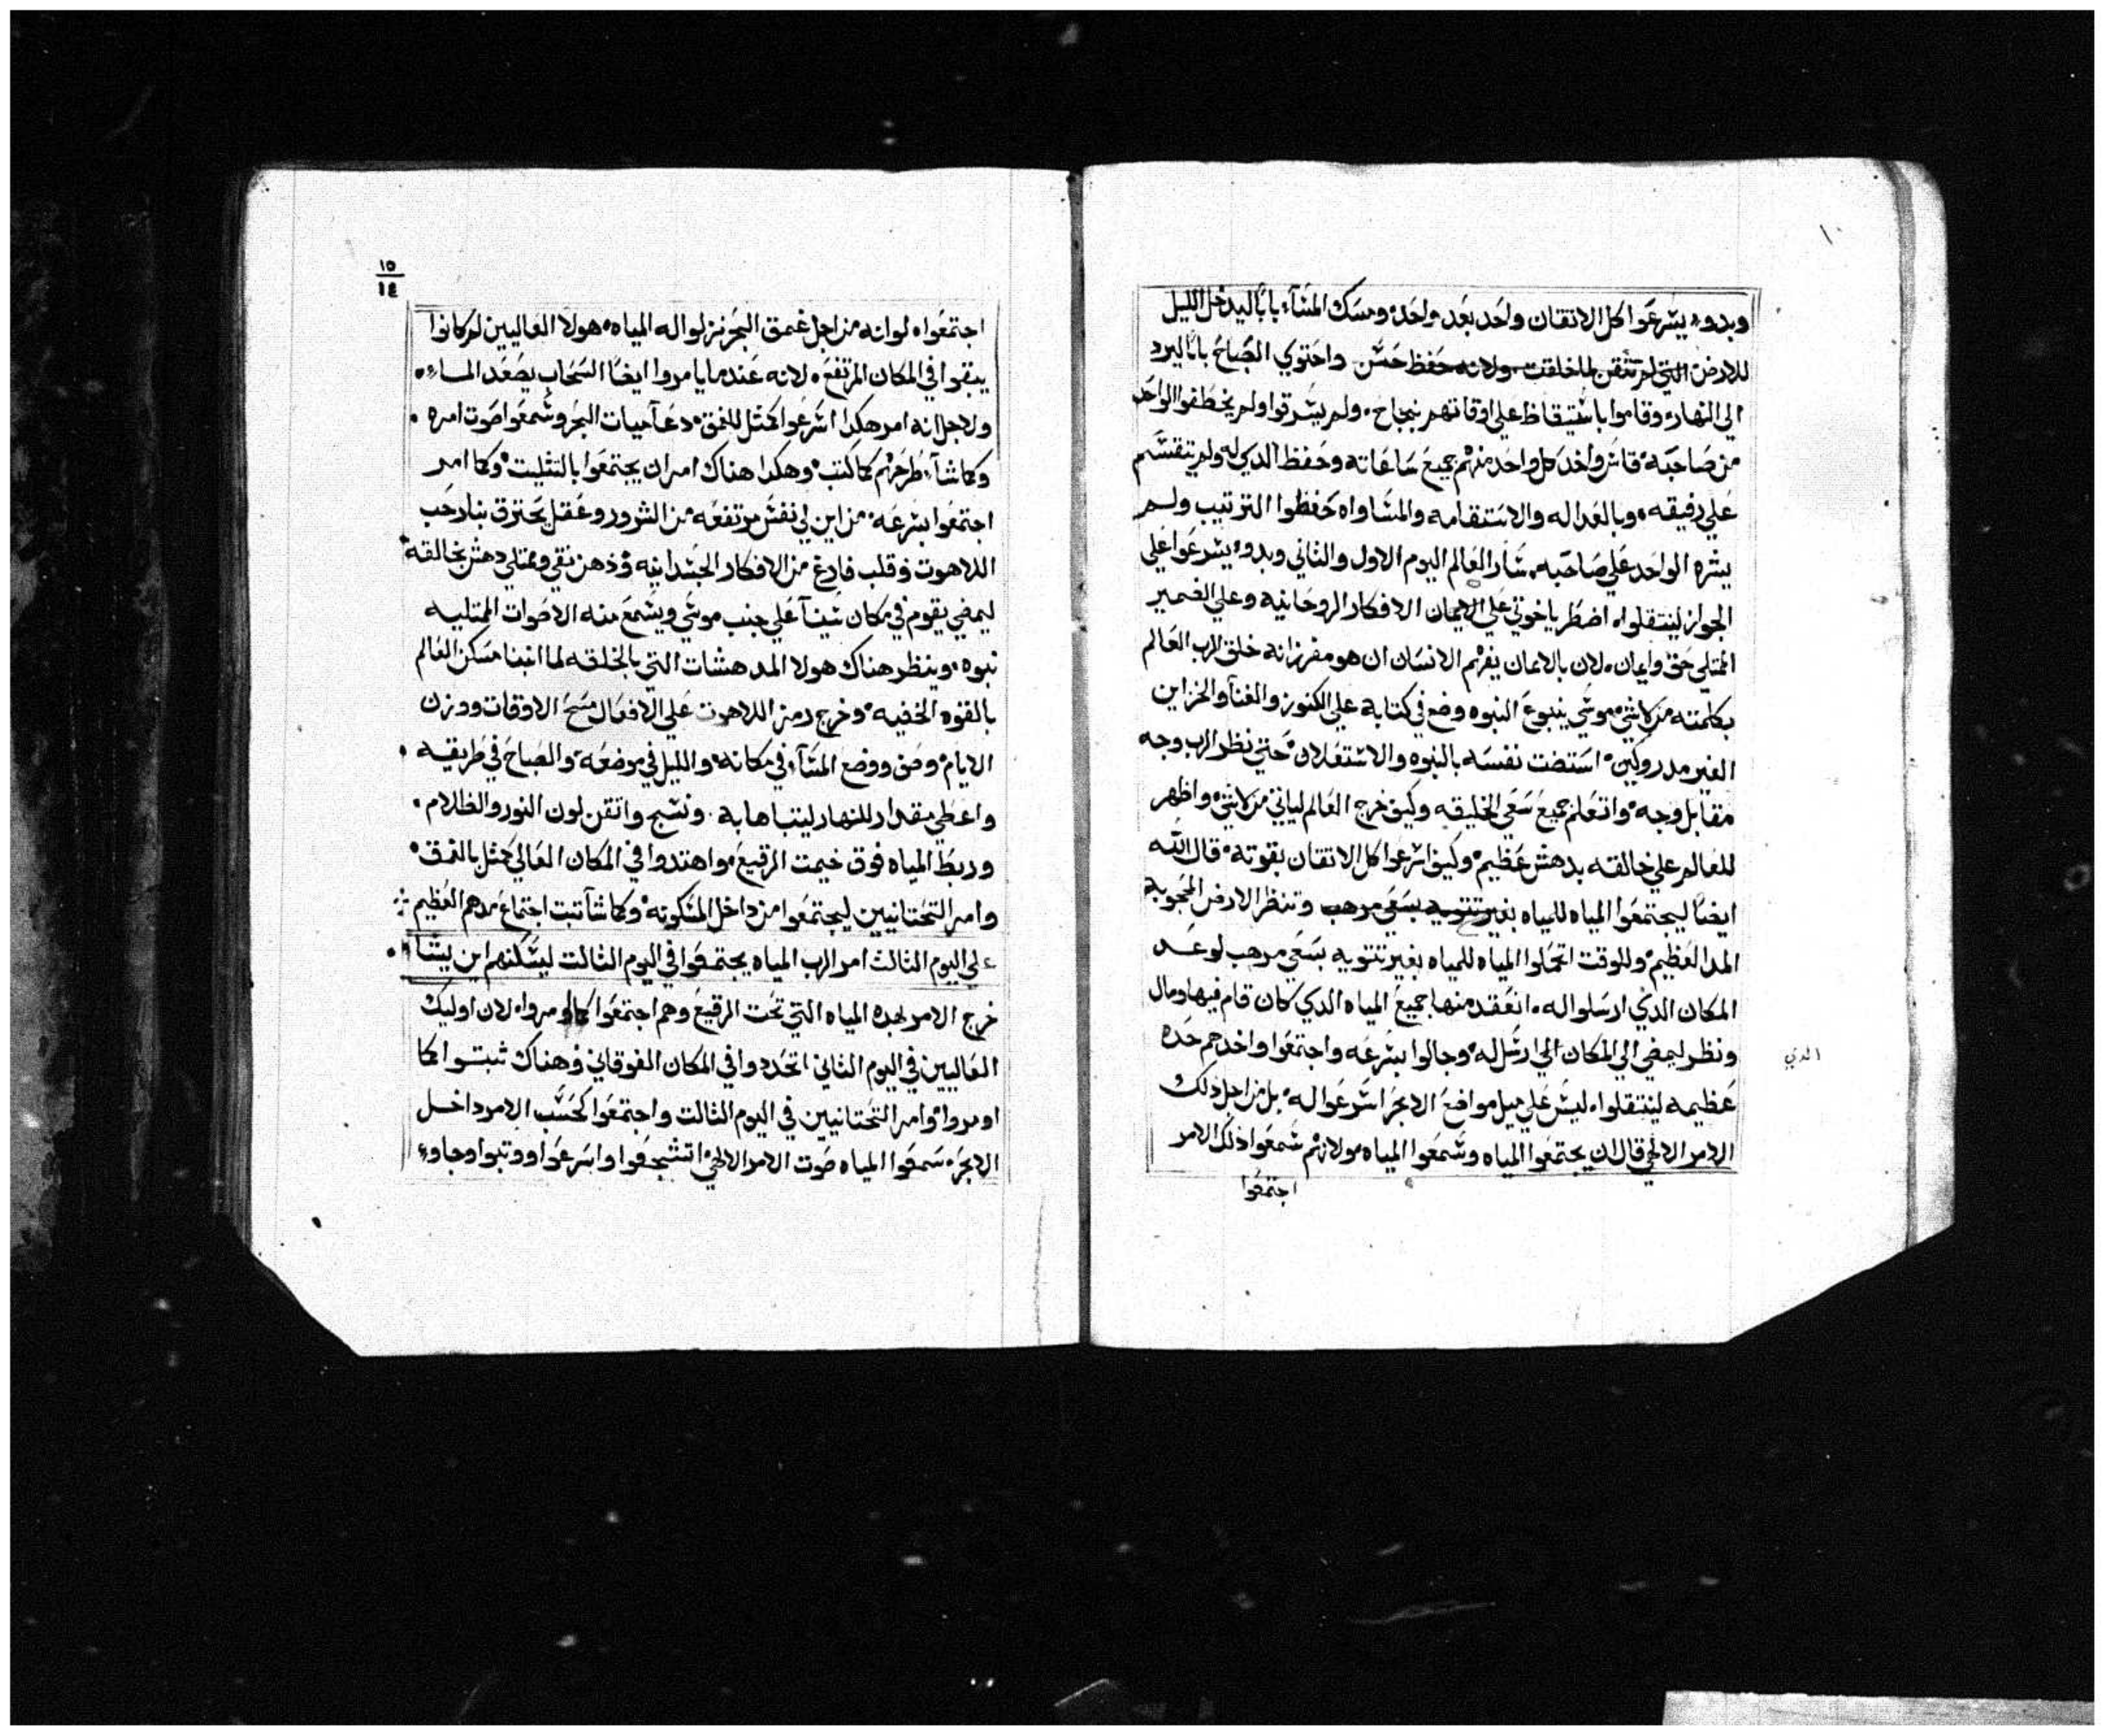 وبدوء يشرعوا كل الاتقان واحد بعد واحد ومسك المسآء بابا ليدخل الليل
للارض التي لم تتقن للخلقت ولانه حفظ حسن واحتوي الصباح بابا ليرد
الي النهار وقاموا باستيقاظ علي اوقاتهم بنجاح ولم يسرقوا ولم يخطفوا الواحد
من صاحبه قاس واخد كل واحد منهم جميع ساعاته وحفظ الدي له ولم يتقسم
علي رفيقه وبالعداله والاستقامه والمساواه حفظوا الترتيب ولم
يشره الواحد علي صاحبه سار العالم اليوم الاول والثاني وبدوء يسرعوا علي
الجواز لينتقلوا اضطر ياخوتي علي الايمان الافكار الروحانيه وعلي الضمير
الممتلي حق وايمان لان بالايمان يفهم الانسان ان هو مفرز انه خلق الرب العالم
بكلمته من لاشي موسي ينبوع النبوه وضع في كتابة علي الكنوز والغنا والخزاين
الغير مدروكين استضت نفسه بالنبوه والاستعلان حتي نظر الرب وجه
مقابل وجه واتعلم جميع سعي الخليقه وكيف خرج العالم لياتي من لاشي واظهر
للعالم علي خالقه بدهش عظيم وكيف اسرعوا كل الاتقان بقوته قال الله
ايضا ليجتمعوا المياه للمياه بغير تنتويه بسعي مرهب وتنظر الارض المحجوبه
المدا العظيم وللوقت اتحملوا المياه للمياه بغير تنتويه بسعي مرهب لوعد
المكان الدي ارسلوا له انعقد منها جميع المياه الدي كان قام فيها ومال
ونظر ليمضي الي المكان الي ارسل له وجالوا بسرعه واجتمعوا واخدهم حده
الدي
عظيمه لينتقلوا ليس علي ميل مواضع الابحر اسرعوا له بل من اجل دلك
الامر الالهي قال ان يجتمعوا المياه وسمعوا المياه مولانهم سمعوا ذلك الامر
اجتمعوا
١٥
١٤
اجتمعوا لو انه من اجل غمق البحر نزلوا له المياه هولا العاليين لم كانوا
يبقوا في المكان المرتفع لانه عندما يامروا ايضا السحاب يصعد الماء
ولاجل انه امر هكدا اسرعوا كمثل للغمق دعا مياه البحر وسمعوا صوت امره
وكما شآ طرحهم كما كتب وهكدا هناك امر ان يجتمعوا بالتثليت وكما امر
اجتمعوا بسرعه من اين لي نفس مرتفعه من الشرور وعقل يحترق بنار حب
اللاهوت وقلب فارغ من الافكار الجسدانيه وذهن نقي وممتلي دهش بخالقه
ليمضي يقوم في مكان سينآ علي جنب موسي ويسمع منه الاصوات الممتليه
نبوه وينظر هناك هولا المدهشات التي بالخلقه لما ابتنا مسكن العالم
بالقوه الخفيه وخرج رمز اللاهوت علي الافعال مسح الاوقات ووزن
الايام وصف ووضع المسآ في مكانه والليل في موضعه والصباح في طريقه
واعطي مقدار للنهار ليتباها به ونسج واتقن لون النور والظلام
وربط المياه فوق خيمت الرقيع واهتدوا في المكان العالي كمثل بالغمق
وامر التحتانيين ليجتمعوا من داخل المسكونه وكما شآ تبت اجتماع مدهم العظيم
علي اليوم الثالث امر الرب المياه يجتمعوا في اليوم الثالت ليسكنهم اين يشآ
خرج الامر لهده المياه التي تحت الرقيع وهم اجتمعوا كما اومروا لان اوليك
العاليين في اليوم الثاني اتحددوا في المكان الفوقاني وهناك ثبتوا كما
اومروا وامر التحتانيين في اليوم الثالت واجتمعوا كحسب الامر داخل
الابحر سمعوا المياه صوت الامر الالهي اتشجعوا واسرعوا ووتبوا وجاوء